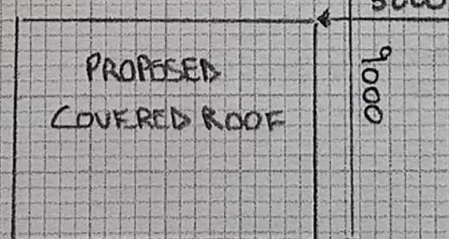 PROPOSED
COVERED ROOF
9000